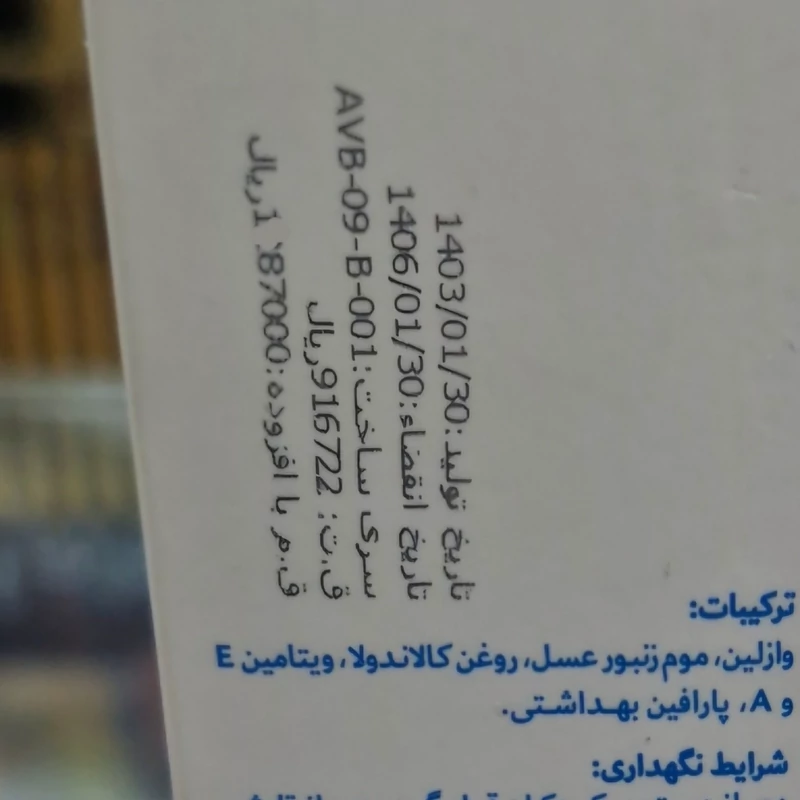 تاریخ تولید:1403/01/30
تاریخ انقضاء:1406/01/30
سری ساخت:AVB-09-B-001
ق.ت: 916722ریال
ق.م با افزوده:1187000ریال
ترکیبات:
وازلین، موم زنبور عسل، روغن کالاندولا، ویتامین E
و A، پارافین بهداشتی.
شرایط نگهداری: